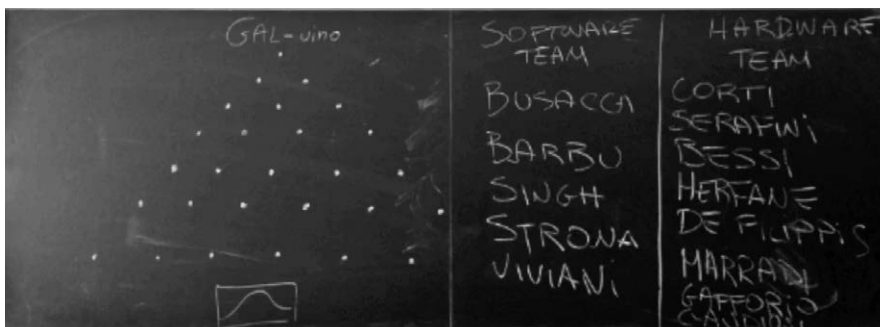 GAL-uino
SOFTWARE
TEAM
BUSACCA
BARBU
SINGH
STRONA
VIVIANI
HARDWARE
TEAM
CORTI
SERAFINI
BESSI
HERFANE
DE FILIPPIS
MARRADI
GAFFORIO